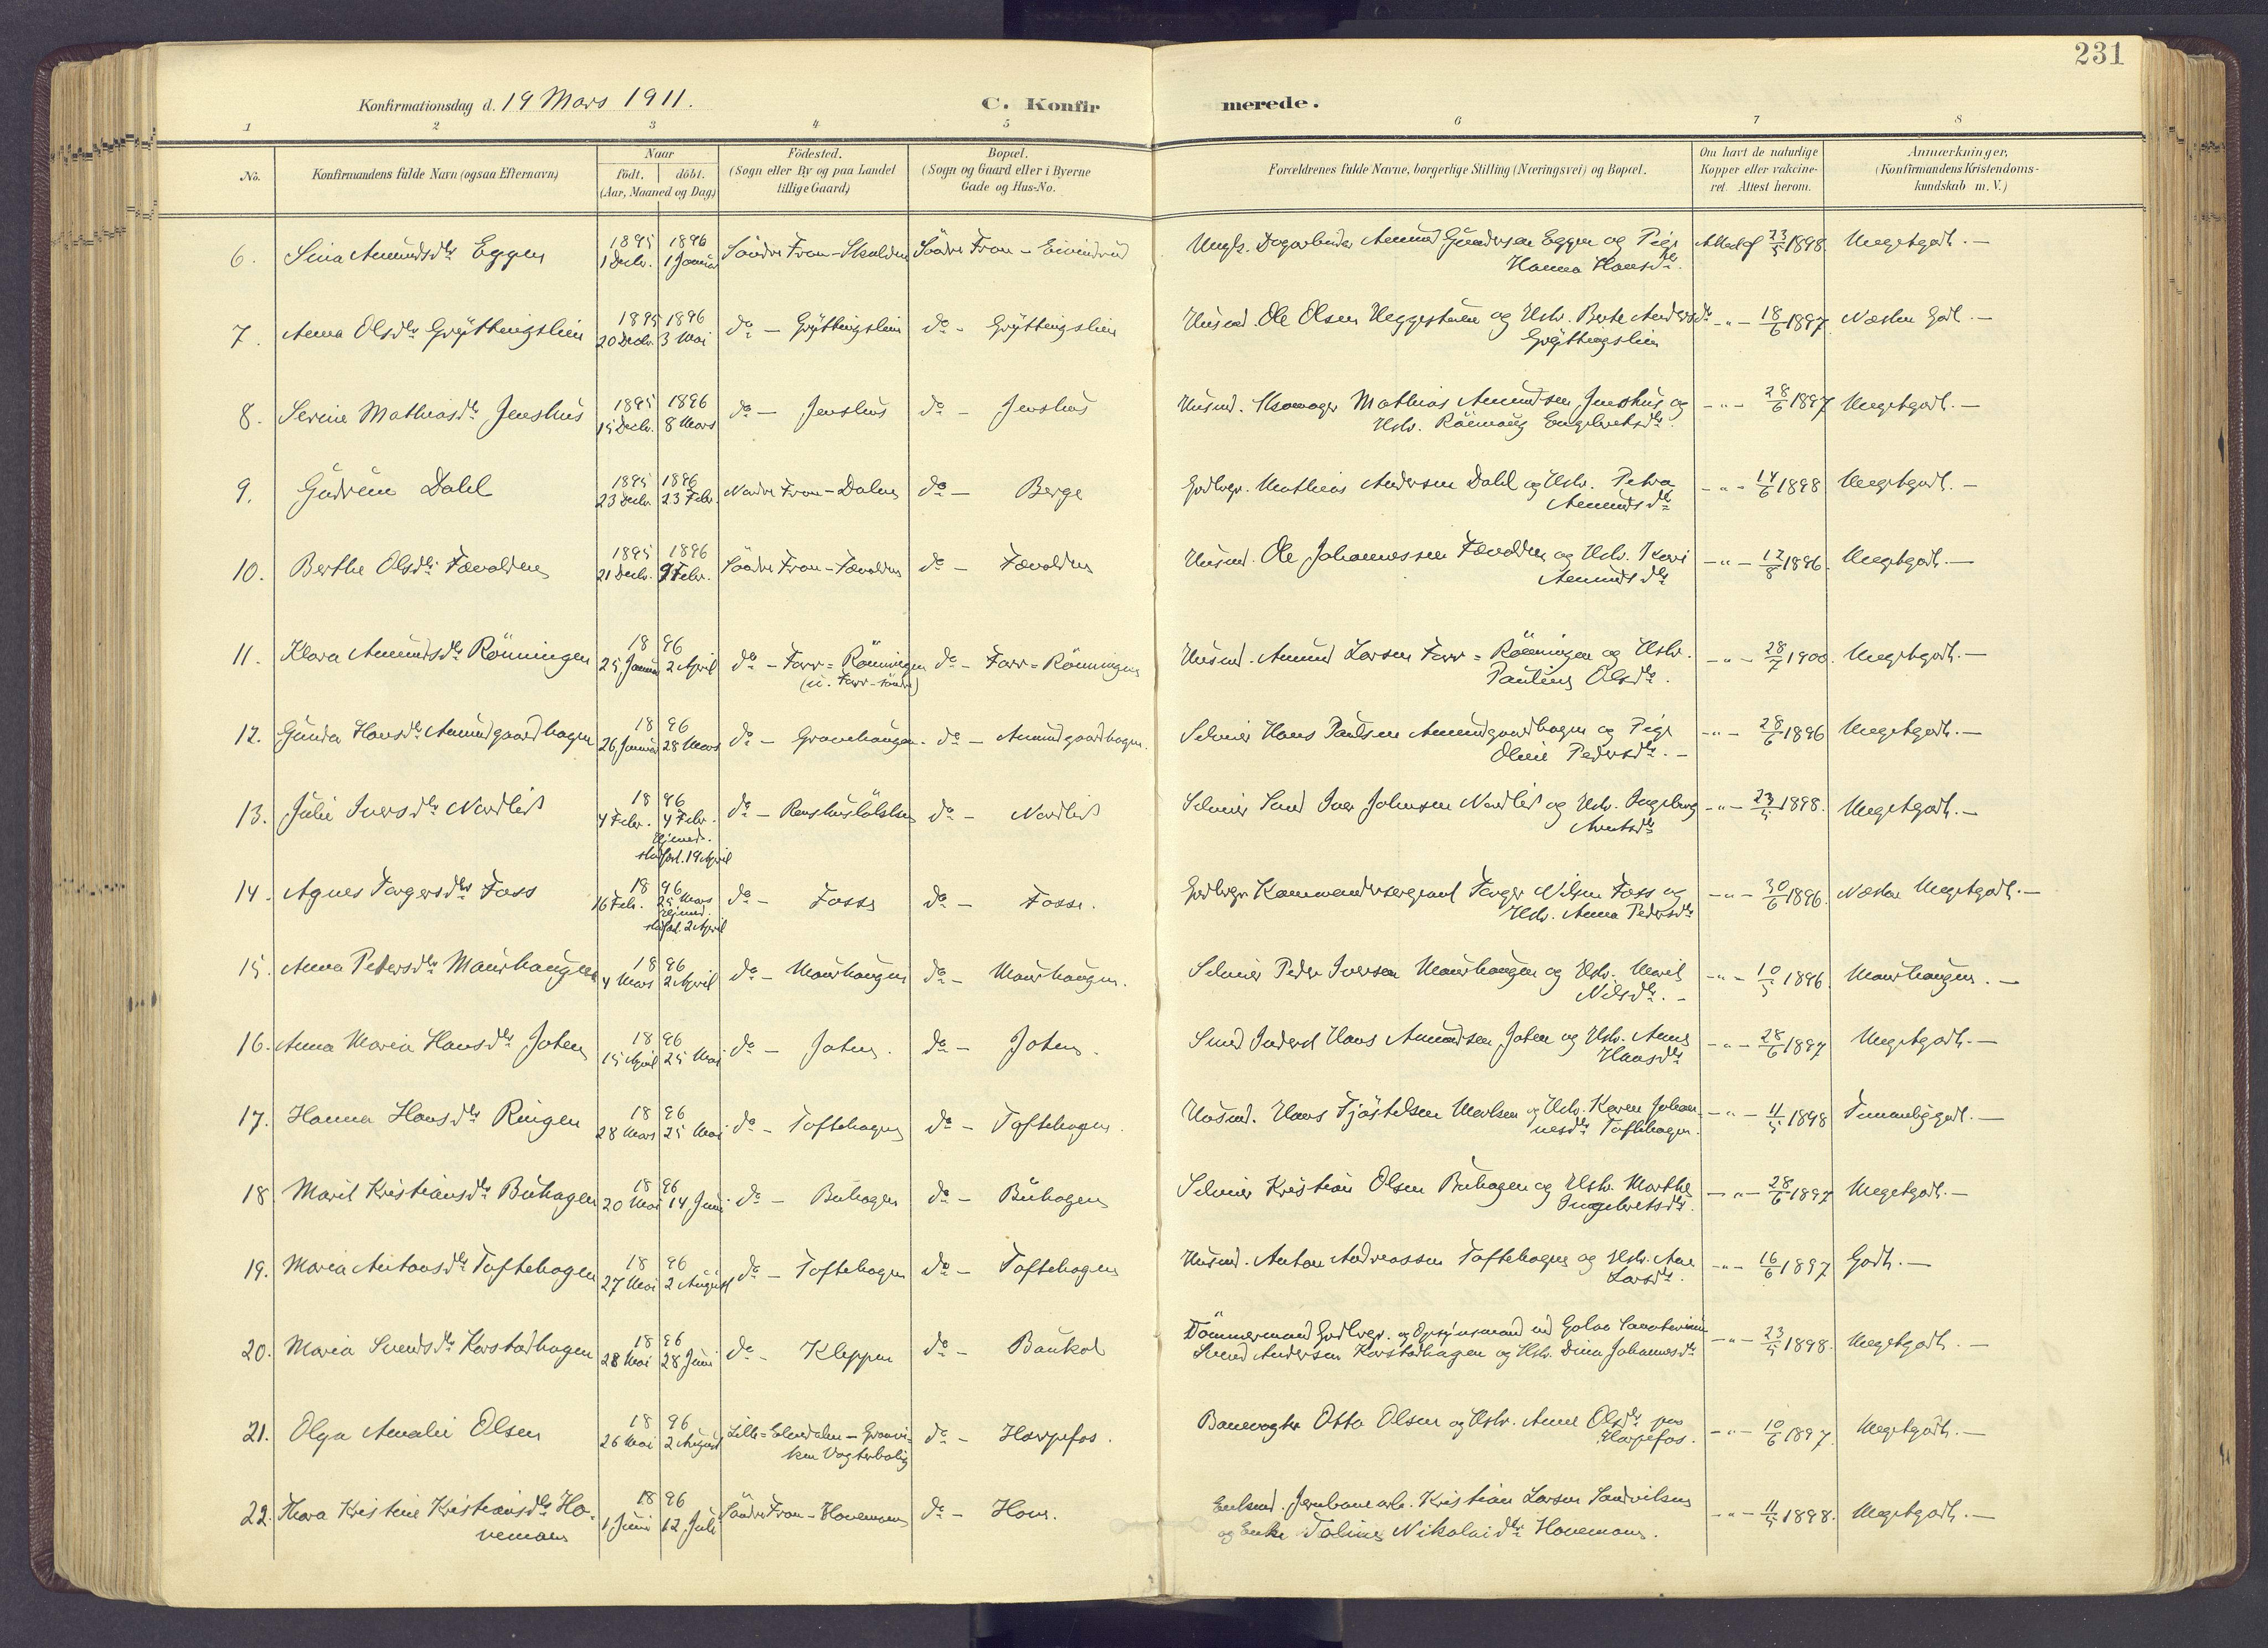 231
Konfirmationsdag d. 19 Mars 1911.
C. Konfirmerede.
1 2 3 4 5 6 7 8
No.
Konfirmandens fulde Navn (ogsaa Efternavn)
Naar
födt. döbt.
(Aar, Maaned og Dag)
Födested.
(Sogn eller By og paa Landet
tillige Gaard)
Bopæl.
(Sogn og Gaard eller i Byerne
Gade og Hus-No.
Forældrenes fulde Navne, borgerlige Stilling (Næringsvei) og Bopæl.
Om havt de naturlige
Kopper eller vakcine-
ret. Attest herom.
Anmærkninger,
(Konfirmandens Kristendoms-
kundskab m. V.)
6. Sina Amundsdtr Eggen 1895 1 Decbr. 1896 1 Januar Söndre Fron - Skulden Söndre Fron - Eivindrud
Ungk. Dagarbeider Amund Gundersen Eggen og Pige
Hanna Hansdtr. Attest af 23/5 1898. Meget godt. -
7. Anna Olsdtr Gryttingslien 1895 20 Decbr. 1896 3 Mai do - Gryttingslien do - Gryttingslien
Husmd. Ole Olsen Heggestuen og Hstr. Berte Andersdtr
Gryttingslien -"- 18/6 1897. Næsten Godt. -
8. Serine Mathiasdtr Jenshus 1895 15 Decbr. 1896 8 Mars do - Jenshus do - Jenshus
Husmd. Skomager Mathias Amundsen Jenshus og
Hstr. Rönnaug Engebretsdtr. -"- 28/6 1897 Meget godt. -
9. Gudrun Dahl 1895 23 Decbr. 1896 23 Febr. Nordre Fron - Dalen do - Berge
Gdbrgr. Mathias Andersen Dahl og Hstr. Petra
Amundsdtr -"- 14/6 1898 Meget godt. -
10. Berthe Olsdtr Fævolden 1895 21 Decbr. 1896 9 Febr. Söndre Fron - Fævolden do - Fævolden
Husmd. Ole Johannessen Fævolden og Hstr. Kari
Amundsdtr -"- 12/8 1896. Meget godt. -
11. Klara Amundsdtr Rönningen 1896 25 Januar 2 April do - Farr=Rönningen do - Farr=Rönningen
(u. Farr-söndre)
Husmd. Amund Larsen Farr=Rönningen og Hstr.
Pauline Olsdtr. -"- 28/7 1900. Meget godt. -
12. Gunda Hansdtr Amundgaardhagen 1896 26 Januar 28 Mars do - Gravehaugen. do - Amundgaardhagen.
Selveier Hans Paulsen Amundgaardhagen og Pige
Oline Pedersdtr. - -"- 28/6 1896 Meget godt. -
13. Julie Iversdtr Nordlid 1896 4 Febr. 4 Febr. Hjemmed.
stadf. 19 April do - do - Nordlid
Selveier Smed Iver Johnsen Nordlid og Hstr. Ingeborg
-"- 23/5 1898. Meget godt. -
14. Agnes Torgersdtr Foss 1896 16 Feb. 25 Mars
Hjemmed.
stadf. 2 April do - Fosse do - Fosse.
Gdbrgr Kommandersergeant Torger Nilsen Foss og
Hstr. Anna Pedersdtr -"- 30/6 1896. Næsten Meget godt. -
15. Anna Petersdtr Maurhaugen 1896 4 Mars 2 April do - Maurhaugen do - Maurhaugen.
Selveier Peder Iversen Maurhaugen og Hstr. Marit
Nilsdtr. - -"- 10/5 1896. Maurhaugen. -
16. Anna Maria Hansdtr Joten 1896 15 April 25 Mai do - Joten. do - Joten.
Smed Inderst Hans Amundsen Joten og Hstr. Anne
Hansdtr -"- 28/6 1897 Meget godt. -
17. Hanna Hansdtr Ringen 1896 28 Mars 25 Mai do - Toftehagen do - Toftehagen.
Husmd. Hans Tjöstelsen og Hstr. Karen Johan-
nesdtr Toftehagen. -"- 11/5 1898 Temmelig godt. -
18. Marit Kristiansdtr Buhagen 1896 20 Mai 14 Juni do - Buhagen do - Buhagen
Selveier Kristian Olsen Buhagen og Hstr. Marthe
Ingebretsdtr. -"- 28/6 1897 Meget godt. -
19. Maria Antonsdtr Toftehagen 1896 27 Mai 2 August do - Toftehagen do - Toftehagen
Husmd. Anton Andreassen Toftehagen og Hstr. Ane
Larsdtr. -"- 16/6 1897 Godt. -
20. Maria Svendsdtr Korstadhagen 1896 28 Mai 28 Juni do - Kleppen do - Baukol
Tömmermand Gdbrgr. og Opsynsmand ved Golaa Sanatorium
Svend Andersen Korstadhagen og Hstr. Dina Johannesdtr -"- 23/5 1898. Meget godt. -
21. Olga Amalie Olsen 1896 26 Mai 2 August Lille=Elvedalen - Granvi-
ken Vogterbolig do - Harpefos.
Banevogter Otto Olsen og Hstr. Anne Olsdtr paa
Harpefos. -"- 10/6 1897. Meget godt. -
22. Thora Kristine Kristiansdtr Ho-
vemoen 1896 1 Juni 12 Juli Söndre Fron - Hovemoen do - Hove.
Enkemd. Jernbanearb. Kristian Larsen Sandviken
og Enke Taline Nikolaidtr Hovemoen. -"- 11/5 1898. Meget godt. -